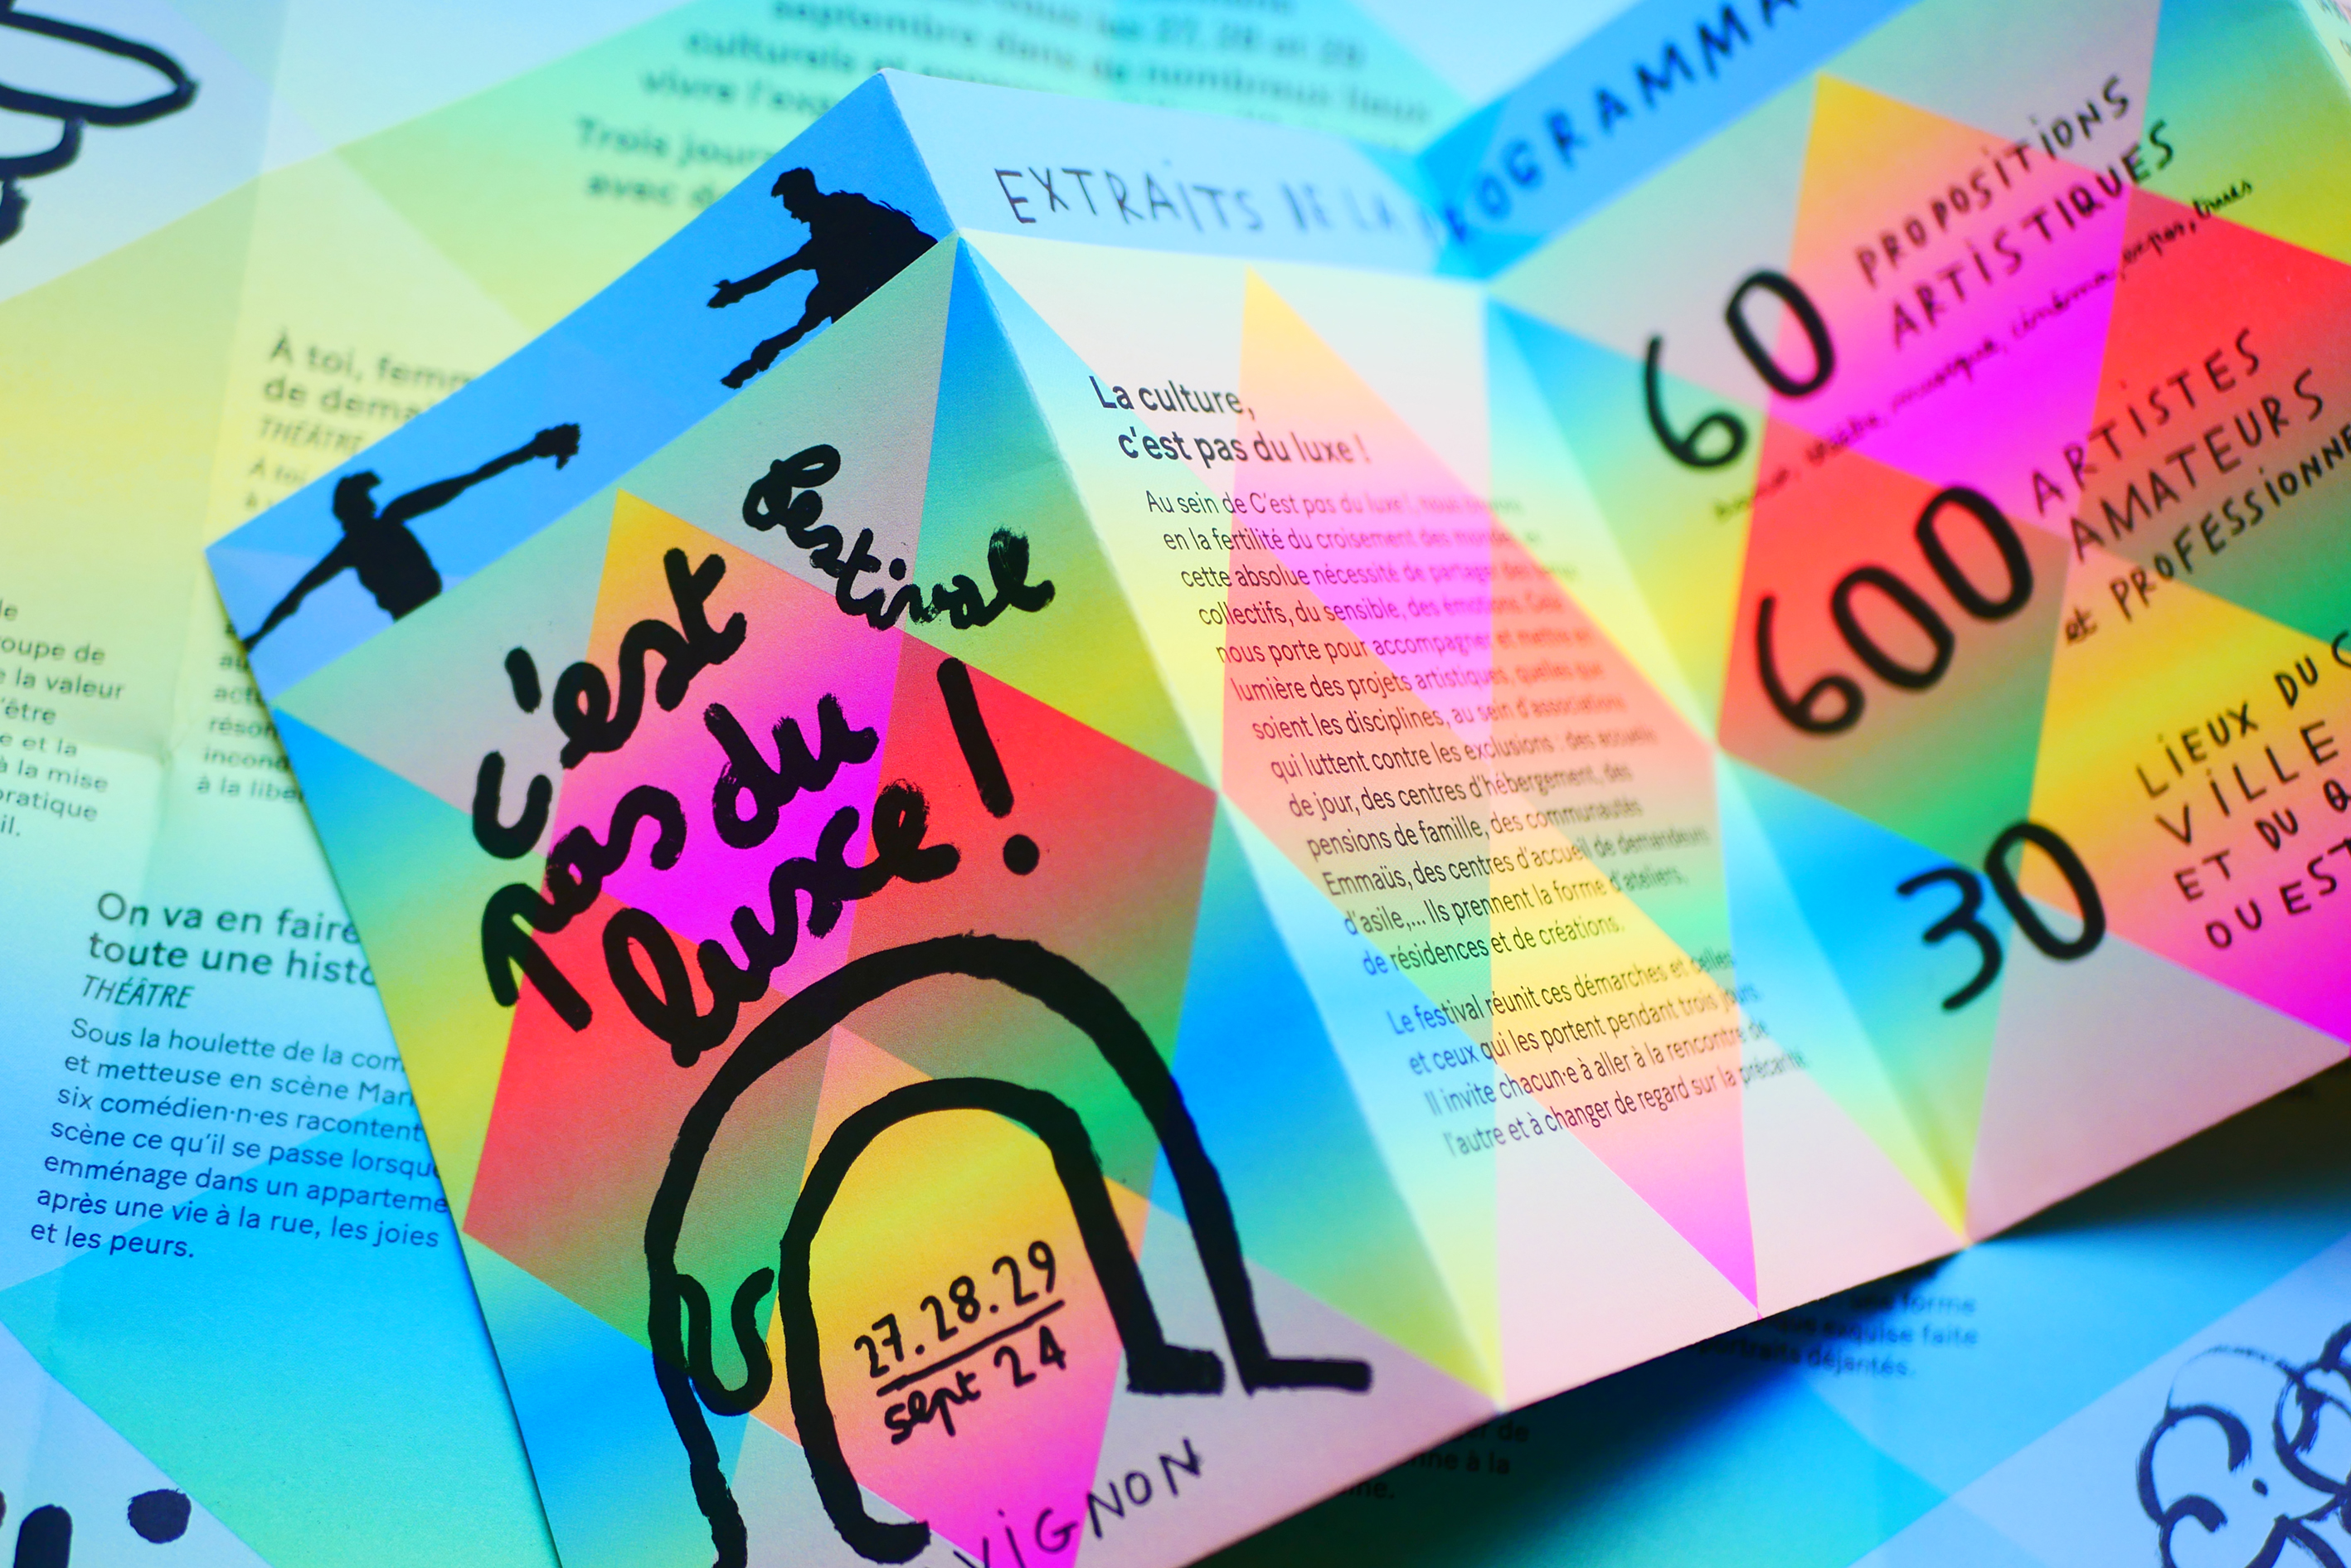 septembre dans de nombreux lieux
culturels et
vivre l'exp
Trois jours
avec de
À toi, femm
de demai
THÉÂTRE
À toi
oupe de
e la valeur
'être
e et la
à la mise
pratique
il.
résor
incond
à la liber
On va en faire
toute une histo
THÉÂTRE
Sous la houlette de la com
et metteuse en scène Mar
six comédien·n·es racontent
scène ce qu'il se passe lorsqu
emménage dans un apparteme
après une vie à la rue, les joies
et les peurs.
festival
c'est
pas du
luxe !
27.28.29
sept 24
VIGNON
EXTRAITS DE LA PROGRAMMA
La culture,
c'est pas du luxe !
Au sein de C'est pas du luxe !, nous
en la fertilité du croisement des mondes, en
cette absolue nécessité de partager des
collectifs, du sensible, des émotions. Cela
nous porte pour accompagner et mettre en
lumière des projets artistiques, quelles que
soient les disciplines, au sein d'associations
qui luttent contre les exclusions : des accueils
de jour, des centres d'hébergement, des
pensions de famille, des communautés
Emmaüs, des centres d'accueil de demandeurs
d'asile,... Ils prennent la forme d'ateliers,
de résidences et de créations.
Le festival réunit ces démarches et celles
et ceux qui les portent pendant trois jours.
Il invite chacun·e à aller à la rencontre de
l'autre et à changer de regard sur la précarité.
60 PROPOSITIONS
ARTISTIQUES
600 ARTISTES
AMATEURS
et PROFESSIONNE
30 LIEUX DU C
VILLE
ET DU
OU EST
forme
exquise faite
portraits déjantés.